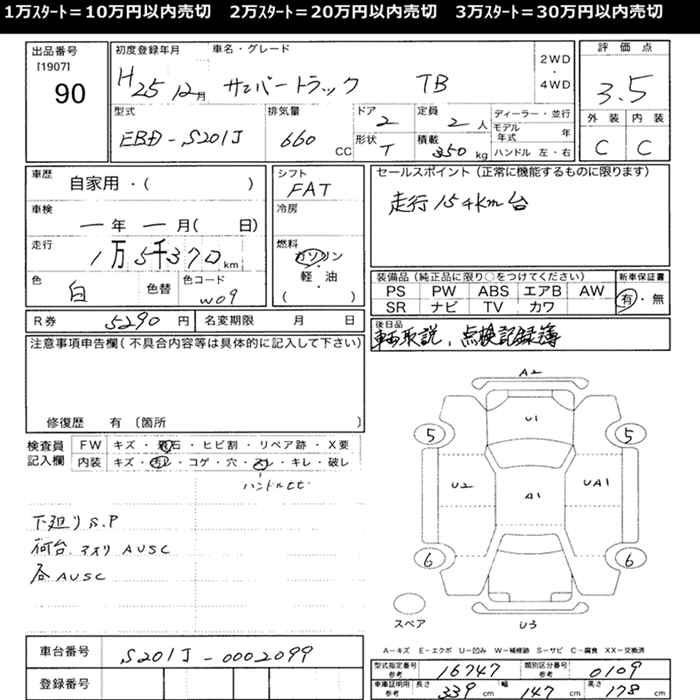 1万ｽﾀｰﾄ＝10万円以内売切　2万ｽﾀｰﾄ＝20万円以内売切　3万ｽﾀｰﾄ＝30万円以内売切
出品番号
[1907]
90
初度登録年月
H25 12月
車名・グレード
サンバートラック TB
2WD
・
4WD
評価点
3.5
型式
EBD-S201J
排気量
660 CC
ドア
2
定員
2 人
形状
T
積載
350 kg
ディーラー・並行
モデル年式 年
ハンドル 左・右
外装 内装
C C
車歴
自家用・( )
車検
一年一月( 日)
走行
1万5千370 km
色
白
色替
色コード
W09
シフト
FAT
冷房
燃料
ガソリン
・
軽・油
( )
セールスポイント(正常に機能するものに限ります)
走行15千km台
装備品(純正品に限り○をつけてください)
PS PW ABS エアB AW
SR ナビ TV カワ
新車保証書
有・無
R券 5290 円
名変期限 月 日
後日品
車両取説、点検記録簿
注意事項申告欄(不具合内容等は具体的に記入して下さい)
修復歴 有 〔箇所 〕
検査員
記入欄
FW キズ・飛石・ヒビ割・リペア跡・X要
内装 キズ・汚レ・コゲ・穴・スレ・キレ・破レ
下廻りS.P
荷台 AUSC
各AUSC
A2
U1
5 5
U2
A1
UA1
6 6
スペア
U3
A-キズ E-エクボ U-凹み W-補修跡 S-サビ C-腐食 XX-交換済
車台番号
S201J-0002099
登録番号
型式指定番号
参考
16747
類別区分番号
参考
0109
車庫証明用
参考
長さ 339 cm 幅 147 cm 高さ 178 cm